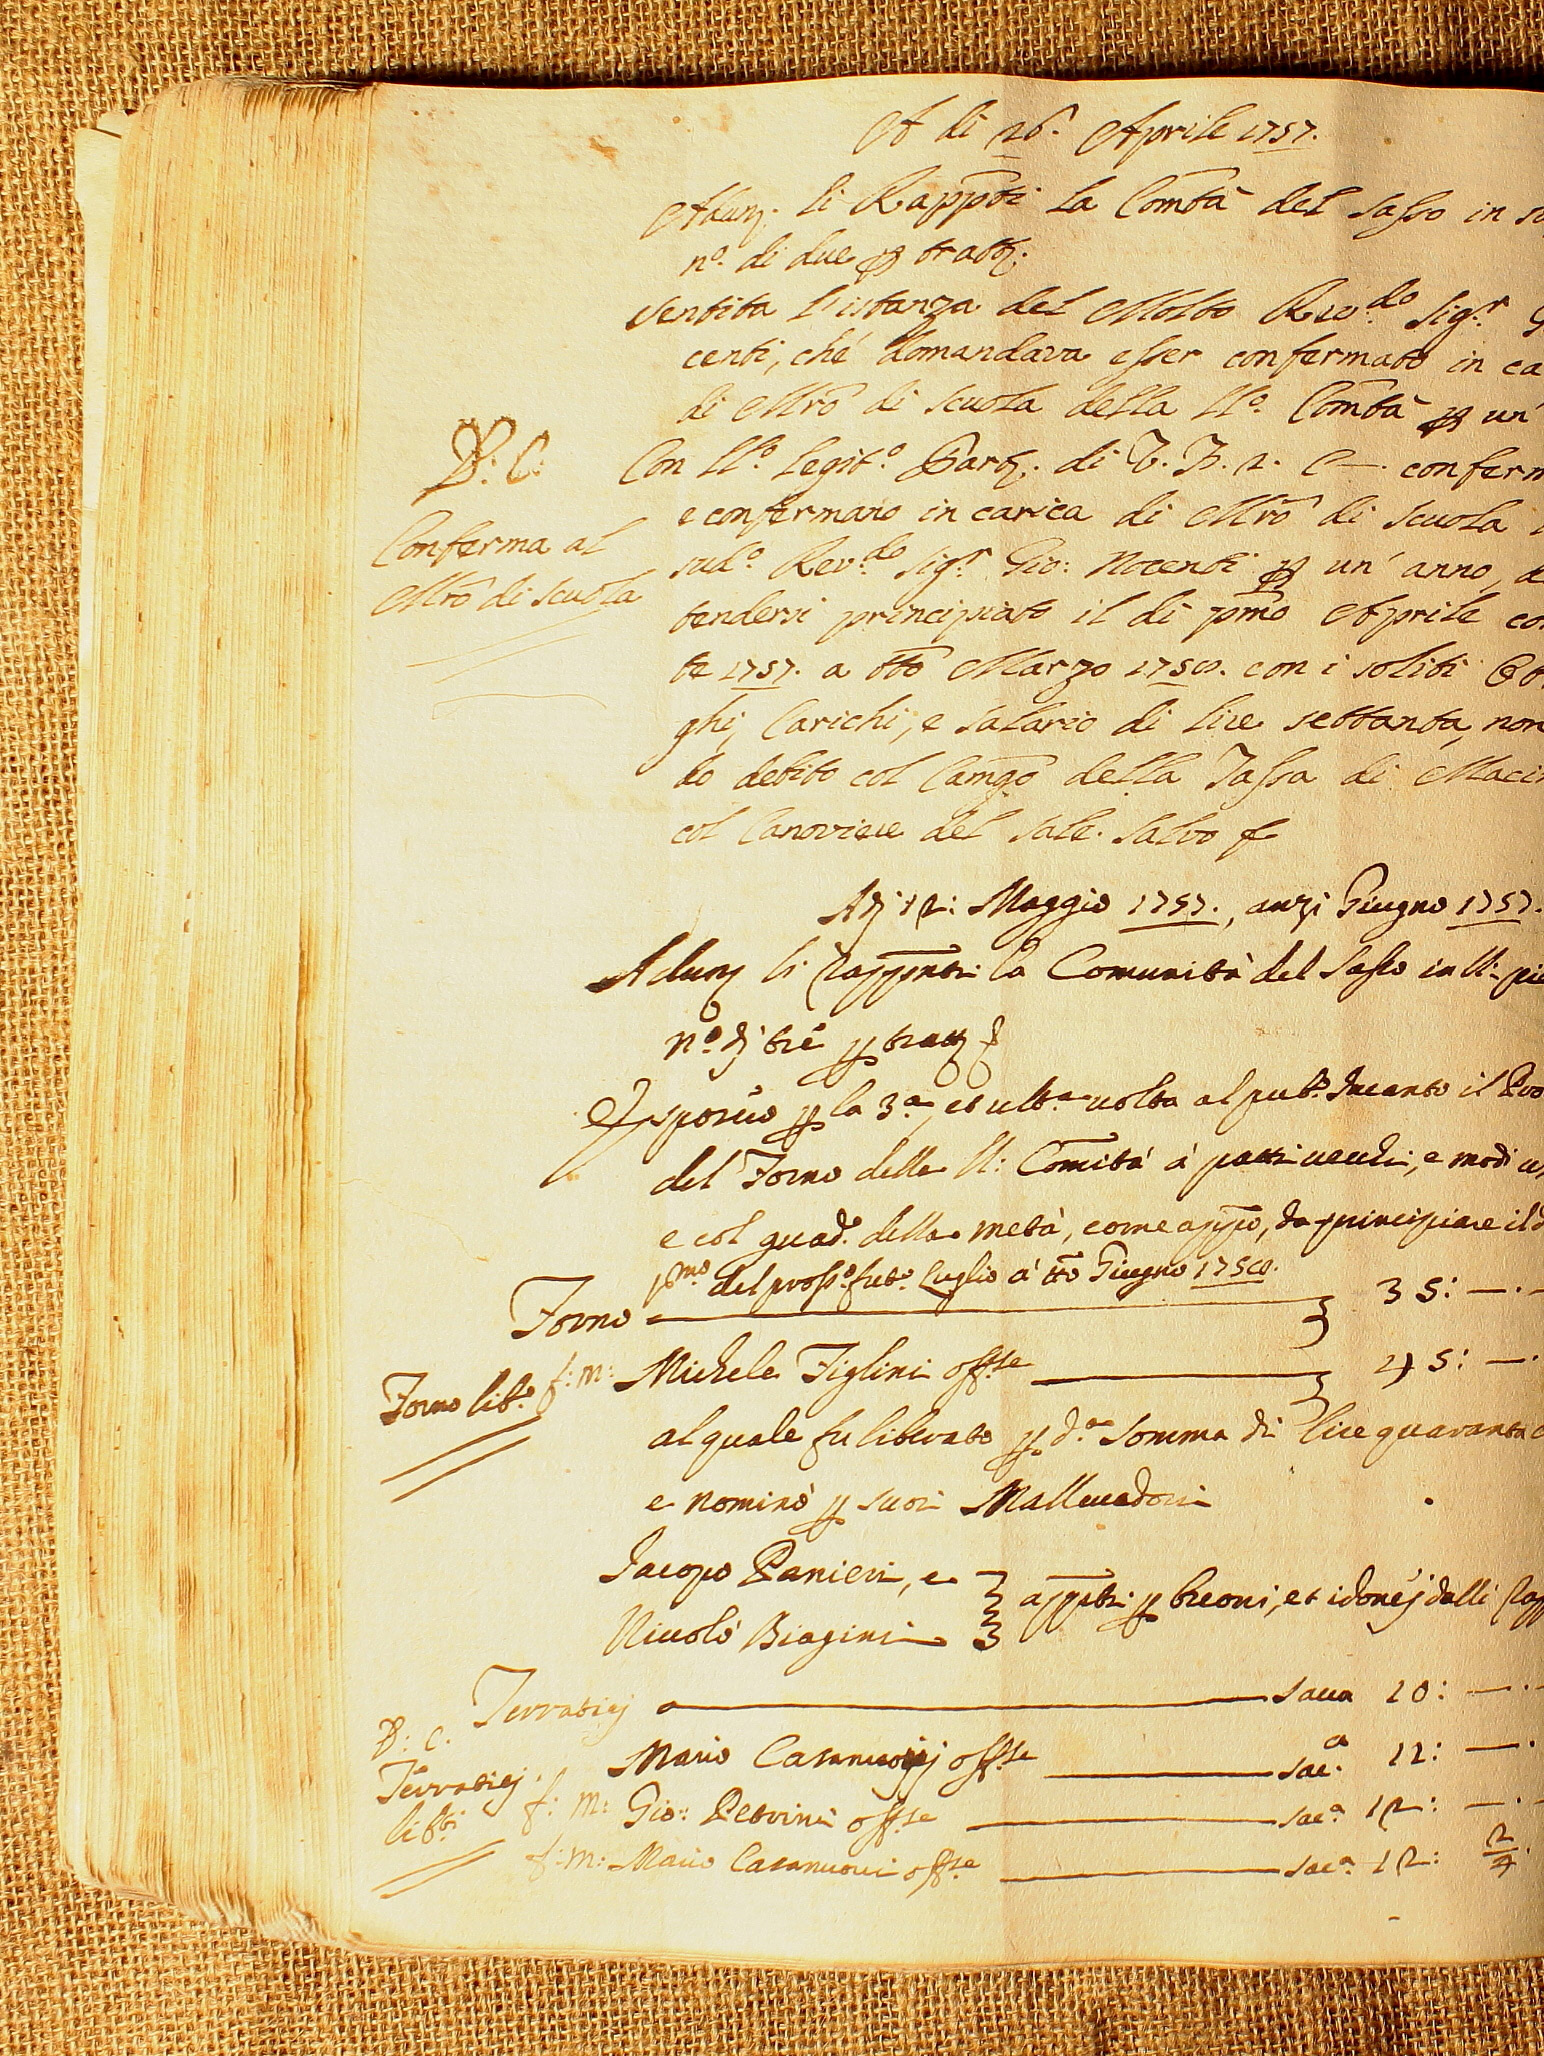 A di 26. Aprile 1757.
Adunj. li Rapp̃nti la Com̃tà del Sasso in su
n.º di due per trattj.
Sentita l'istanza del Molto Rev.do Sig.r G
centi, ché domandava esser confermato in ca
di M̃ro di scuola della ll.º Com̃tà per un'
D: C: Con ll.º legit.º Part. di V. B. 2. C—. conferm
e confermano in carica di M̃ro di Scuola i
Conferma al
M̃ro di scuola
sud.º Rev.do Sig.r Gio: Nocenti per un' anno, da
tendersi principiato il di p̃mo Aprile co
te 1757. a tt̃o Marzo 1758. con i soliti Ob
ghi, Carichi, e Salario di lire settanta, non
do debito col Cam̃go della Tassa di Macin
col Canoviere del Sale. Salvo
Adj 12: Maggio 1757., anzi Giugno 1757.
Adunj li Rapp̃nti la Comunità del Sasso in ll: pie
n.º dj tré per trattj
Esposero per la 3.a, et ult.a volta al pub.º Incanto il Pro
del Forno della ll: Com̃ità à patti vecchi, e modi us
e col quad.º della metà, come app̃o, da principiare il d
p.mo del pross.º fut.º Luglio à tt̃o Giugno 1758.
Forno 35: —.—
Forno lib.º f: m: Michele Figlini off.se 45: —.
al quale fu liberato per d.a Somma di lire quaranta c
e nominò per suoi Mallevadori
Jacopo Ranieri, e
Niccolò Biagini app̃ti per breoni, et idonej dalli Rapp
Terraticj sacca 10: —.—
D: C.
Terraticj.
lib.ti
Mario Casanuovj off.se sac.a 11: —.
f: m: Gio: Petrini off.se sac.a 12: —.—
f: m: Mario Casanuovi off.se sac.a 12: 2/4.